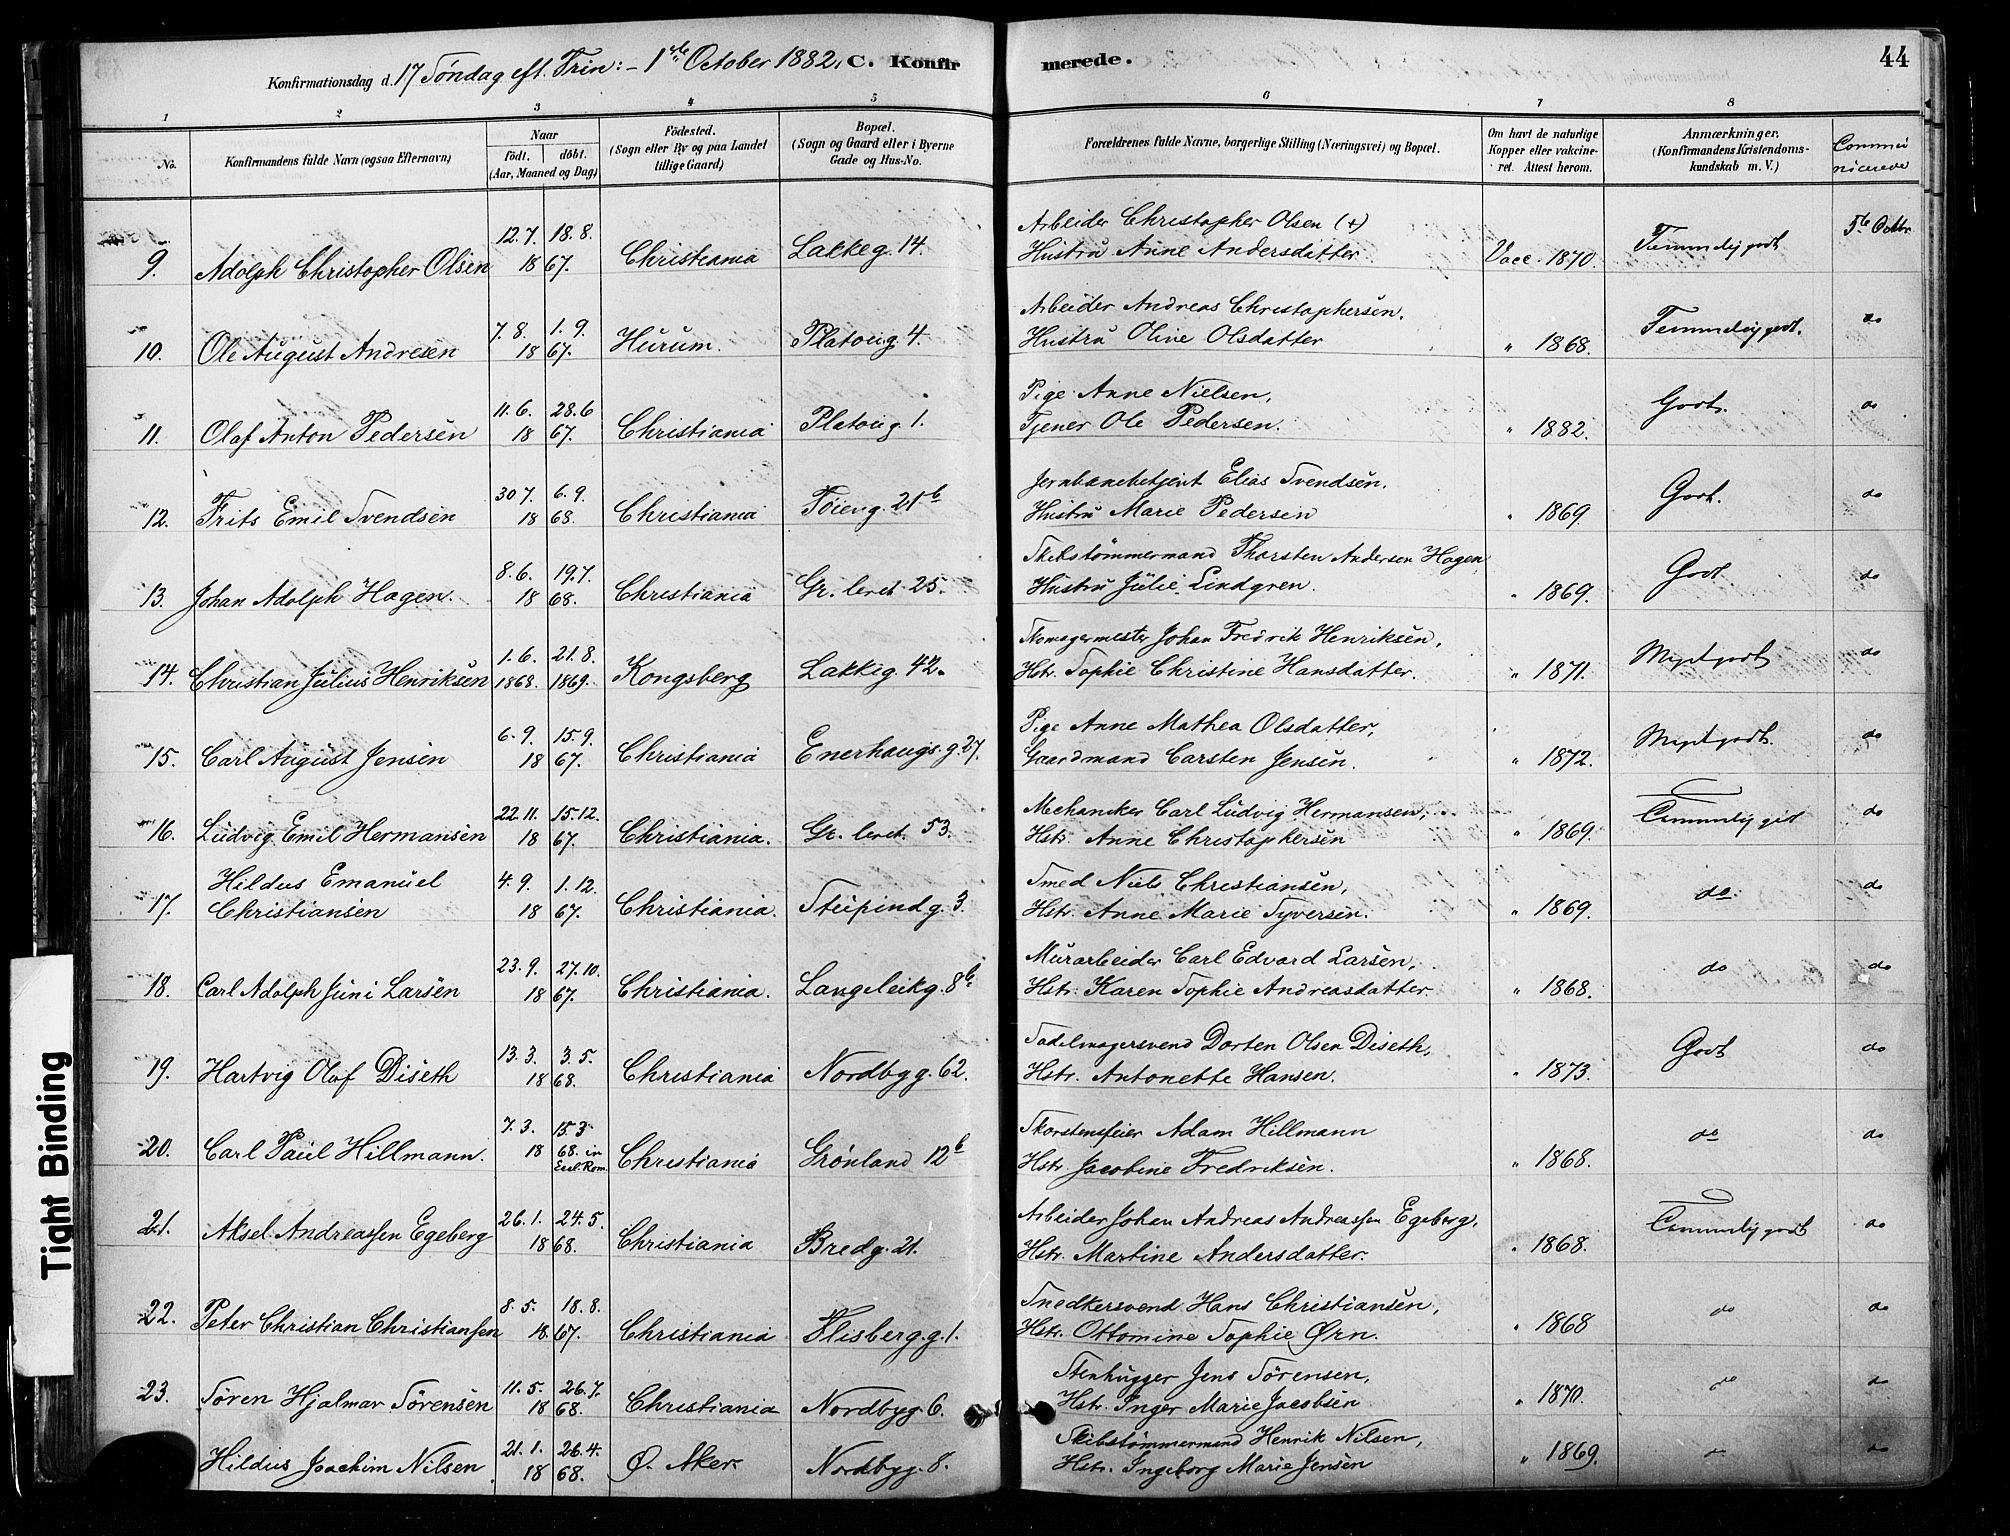 Konfirmationsdag d. 17 Söndag eft. Trin: - 1ste October 1882. C. Konfirmerede. 44
1 2 3 4 5 6 7 8
No. Konfirmandens fulde Navn (ogsaa Efternavn) Naar födt. döbt. (Aar, Maaned og Dag) Födested. (Sogn eller By og paa Landet tillige Gaard) Bopæl. (Sogn og Gaard eller i Byerne Gade og Hus-No. Forældrenes fulde Navne, borgerlige Stilling (Næringsvei) og Bopæl. Om havt de naturlige Kopper eller vakcineret. Attest herom. Anmærkninger. (Konfirmandens Kristendomskundskab m. V.) Communicerede
12.7. 18.8. Arbeider Christopher Olsen (+) 5te Octbr
9. Adolph Christopher Olsen 18 67. Christiania Lakkeg. 14. Hustru Anne Andersdatter Vacc. 1870. Temmelig godt
7.8. 1.9. Arbeider Andreas Christophersen,
10. Ole August Andresen 18 67. Hurum. Platoug. 4. Hustru Oline Olsdatter " 1868. Temmelig godt. do
11.6. 28.6 Pige Anne Nielsen,
11. Olaf Anton Pedersen 18 67. Christiania Platoug. 1. Tjener Ole Pedersen. " 1882. Godt. do
30 7. 6.9. Jernbanebetjent Elias Svendsen.
12. Frits Emil Svendsen 18 68. Christiania Töieng. 21b Hustru Marie Pedersen " 1869. Godt. do
8.6. 19.7. Skibstömmermand Thorsten Andersen Hagen
13. Johan Adolph Hagen. 18 68. Christiania Gr. leret 25. Hustru Julie Lindgren. " 1869. Godt do
1.6. 21.8. Skomagermester Johan Fredrik Henriksen,
14. Christian Julius Henriksen 1868. 1869. Kongsberg Lakkig. 42. Hstr. Sophie Christine Hansdatter. " 1871. Meget godt do
6.9. 15.9. Pige Anne Mathea Olsdatter,
15. Carl August Jensen 18 67. Christiania Enerhaugs.g. 27. Gaardmand Carsten Jensen. " 1872. Meget godt. do
22.11. 15.12. Mekaniker Carl Ludvig Hermansen,
16. Ludvig Emil Hermansen 18 67. Christiania. Gr. leret 53. Hstr. Anne Christophersen " 1869. Temmelig godt do
Hildus Emanuel 4.9. 1.12. Smed Niels Christiansen,
17. Christiansen 18 67. Christiania. Stupindg. 3. Hstr. Anne Marie Syversen. " 1869. do. do
23.9. 27.10. Murarbeider Carl Edvard Larsen,
18. Carl Adolph Juni Larsen 18 67. Christiania. Langeleikg. 8b Hstr. Karen Sophie Andreasdatter. " 1868. do do
13.3. 3.5. Sadelmagersvend Dorten Olsen Diseth,
19. Hartvig Olaf Diseth 18 68. Christiania Nordbyg. 62. Hstr. Antonette Hansen. " 1873. Godt do
7.3. 15.3 Skorstensfeier Adam Hillmann
20. Carl Paul Hillmann. 18 68. in Christiania Grönland 12b Hstr. Jacobine Fredriksen. " 1868. do do
26.1. 24.5. Arbeider Johan Andreas Andreassen Egeberg,
21. Aksel Andreassen Egeberg 18 68. Christiania Bredg. 21. Hstr. Martine Andersdatter. " 1868. Temmelig godt do
8.5. 18.8. Snedkersvend Hans Christiansen,
22. Peter Christian Christiansen 18 67. Christiania Flisberg.g. 1. Hstr. Ottomine Sophie Ørn. " 1868 do do
11.5. 26.7. Stenhugger Jens Sörensen,
23. Sören Hjalmar Sörensen 18 68. Christiania Nordbyg. 6. Hstr. Inger Marie Jacobsen " 1870. do do
21.1. 26.4. Skibstömmermand Henrik Nilsen,
Hildus Joachim Nilsen 18 68. Ø. Aker Nordbyg. 8. Hstr. Ingeborg Marie Jensen " 1869. do do
Tight Binding